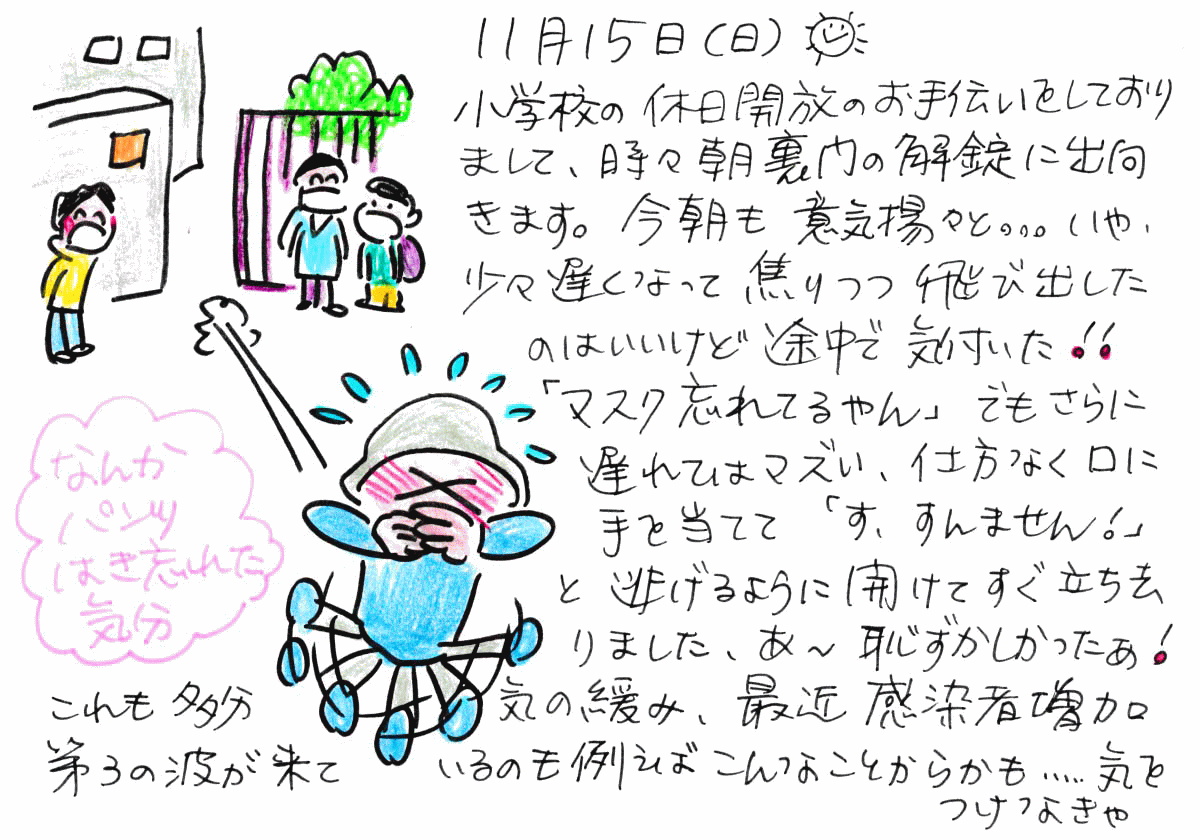 11月15日(日)
小学校の休日開放のお手伝いをしており
まして、時々朝裏門の解錠に出向
きます。今朝も意気揚々と。。。いや、
少々遅くなって焦りつつ飛び出した
のはいいけど途中で気付いた!!
「マスク忘れてるやん」でもさらに
遅れてはマズい、仕方なく口に
手を当てて「す、すんません!」
と逃げるように開けてすぐ立ち去
りました、あ〜恥ずかしかったぁ!
なんか
パンツ
はき忘れた
気分
これも多分気の緩み、最近感染者増加
第3の波が来ているのも例えばこんなことからかも.....気を
つけなきゃ